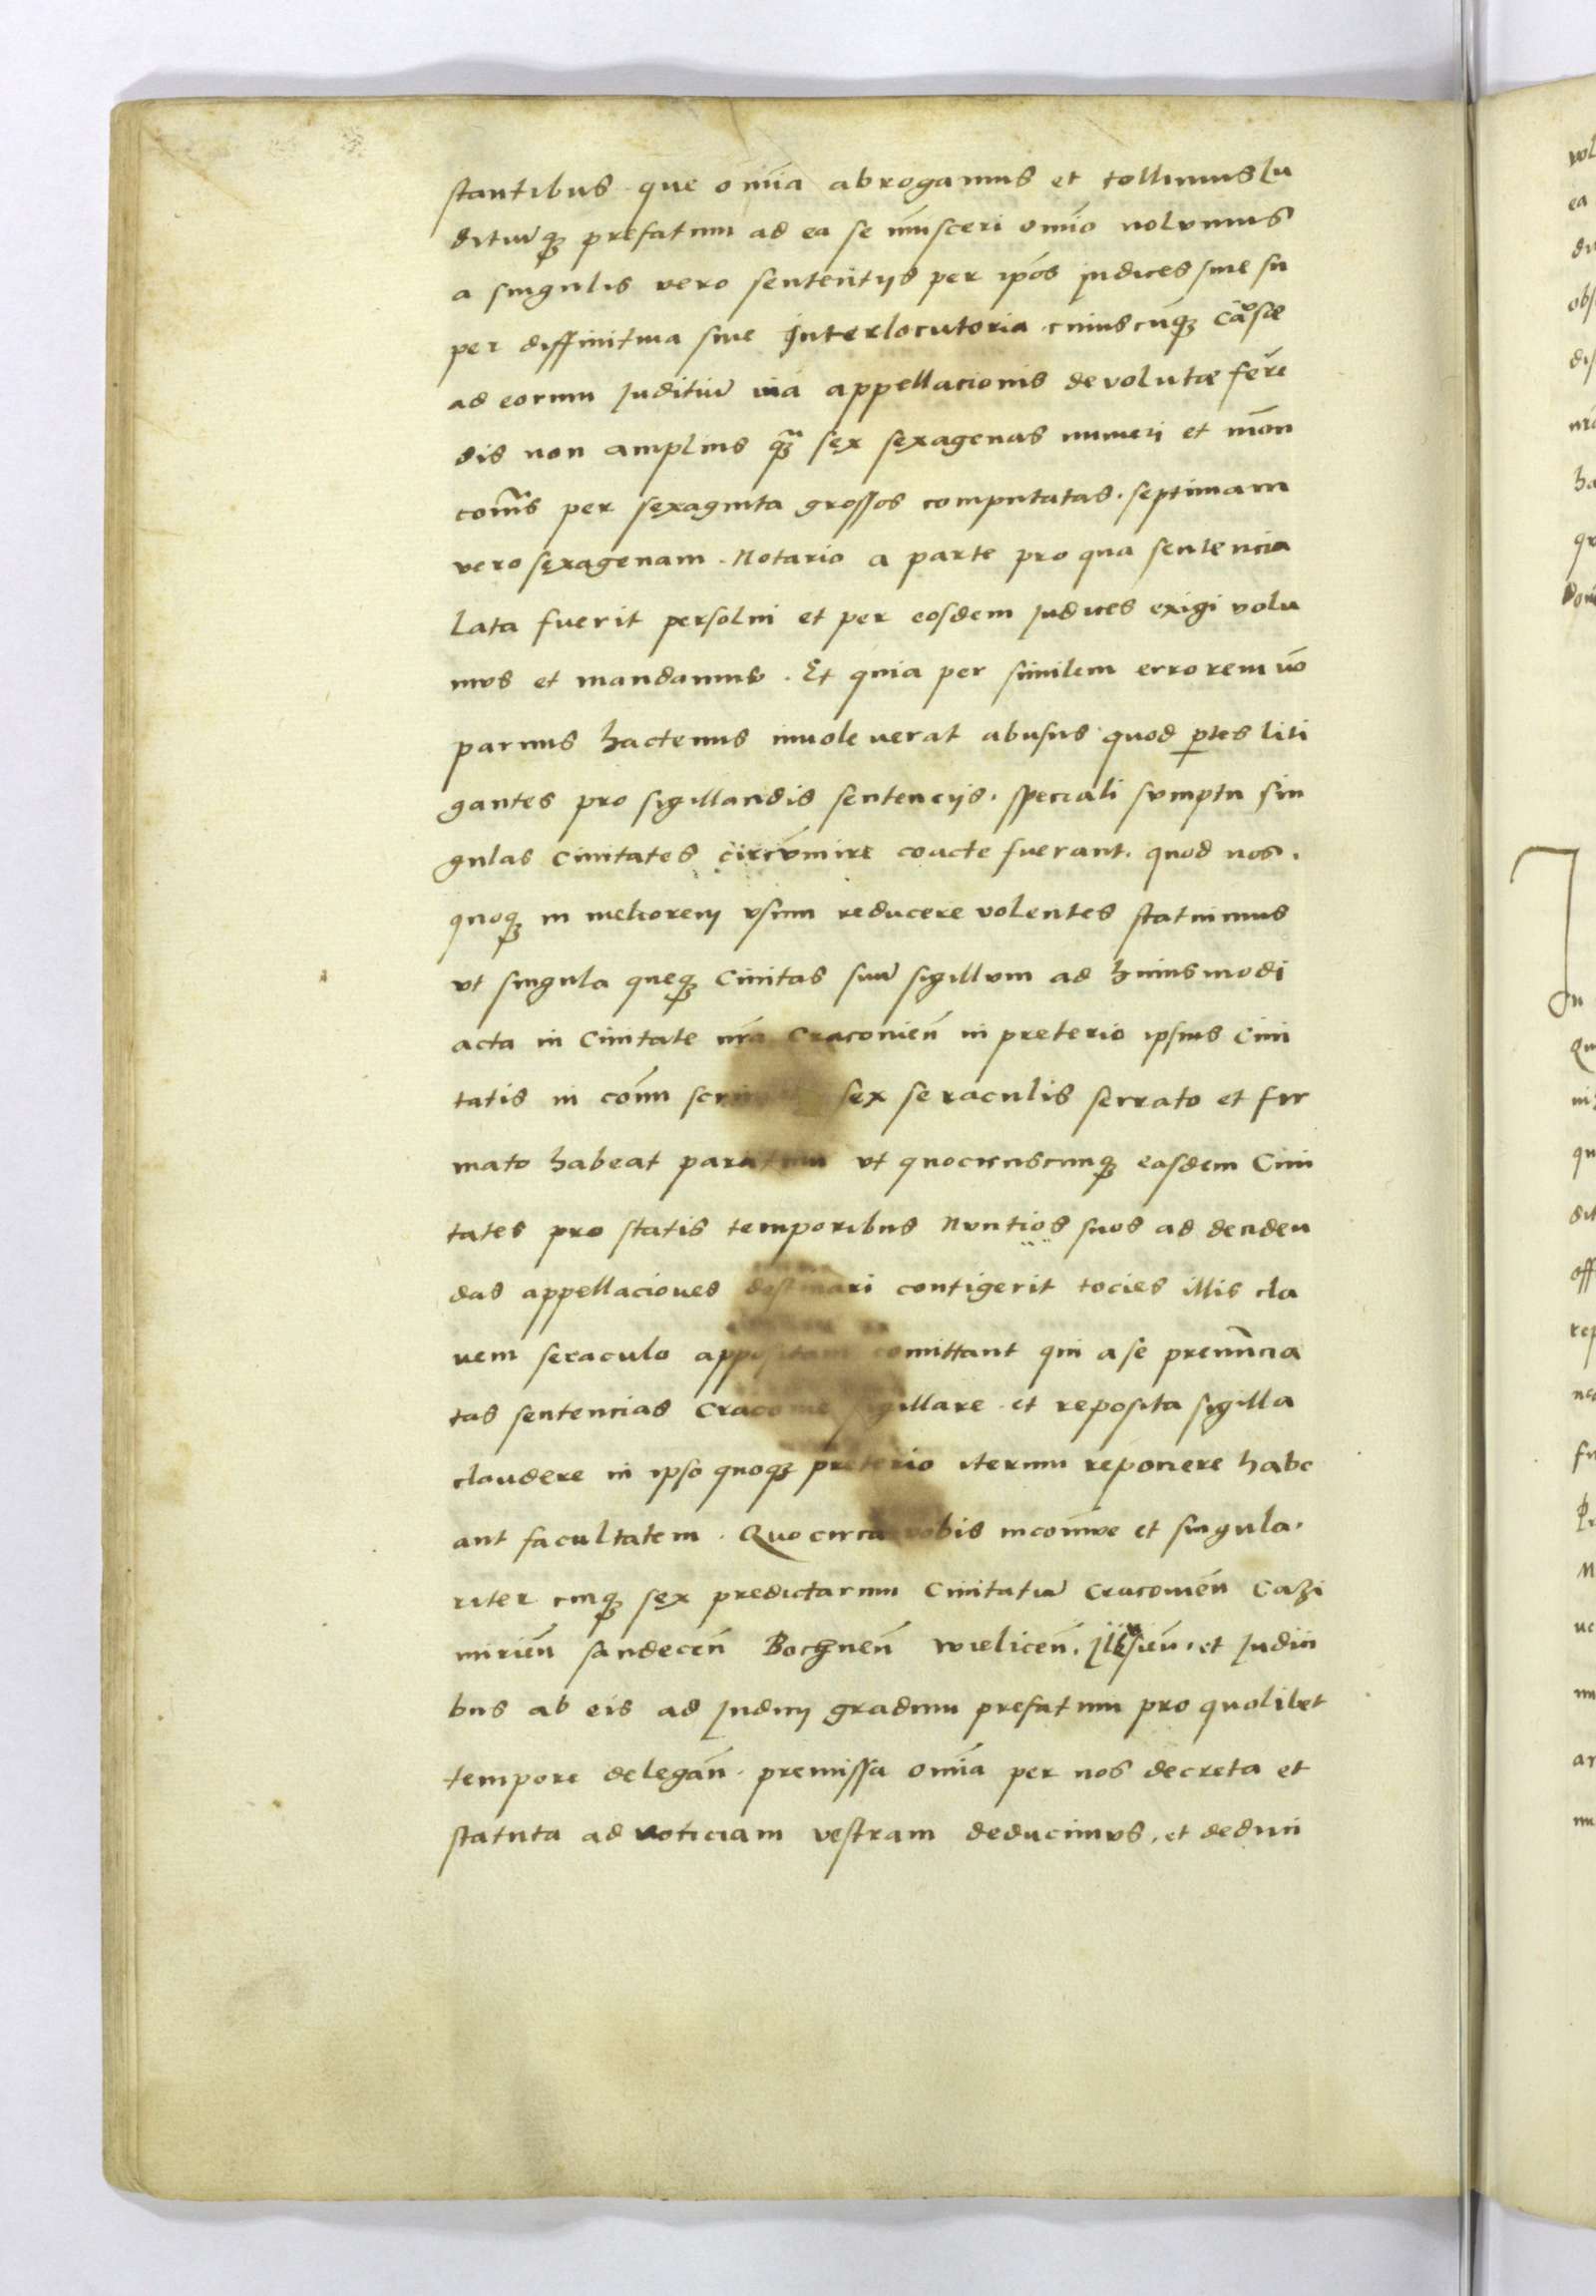 stantibus que om̄ia abrogamus et tollimus Iu
ditiūqꝫ prefatum ad ea se im̄isceri om̄io nolumus
a singulis vero sententijs per ip̄os judices sine su
per diffinitiua siue Interlocutoria cuiuscūqꝫ causæ
ad eorum Juditiū uia appellacionis devolutæ feren
dis non amplius qꝫ̄ sex sexagenas numeri et mōn
com̄is per sexaginta grossos computatas. septimam
vero sexagenam. Notario a parte pro qua sentencia
lata fuerit persolui et per eosdem judices exigi volu
mus et mandamus. Et quia per similem errorem nō
parmus hactenus inuoleuerat abusus quod ꝑtes liti
gantes pro sigillandis sentencijs. speciali sumptu sin
gulas Ciuitates circumire coacte fuerant. quod nos.
quoqꝫ in meliorem vsum reducere volentes statuimus
vt singula queqꝫ Ciuitas suū sigillum ad huiusmodi
acta in Ciuitate nr̄a Cracouien̄ in preterio ipsius Ciui
tatis in com̄i scrinio sex seraculis serrato et fir
mato habeat paratum vt quocienscunqꝫ easdem Ciui
tates pro statis temporibus Nuntios suos ad dendeu
das appellaciones destinari contigerit tocies illis cla
uem seraculo appositam comittant qui a se pronun̄cia
tas sentencias Cracouie sigillare. et reposita sigilla
claudere in ipso quoqꝫ preterio iterum reponere habe
ant facultatem. Quocirca vobis incom̄ue et singula.
riter cuiqꝫ sex predictarum Ciuitatū Cracouien̄ Cazi
mirien̄ sandecen̄ Bochnen̄ wielicen̄. Ilkusien̄. et Judici
bus ab eis ad Judicij gradum prefatum pro quolibet
tempore delegan̄. premissa om̄ia per nos decreta et
statuta ad noticiam vestram deducimus. et deduci